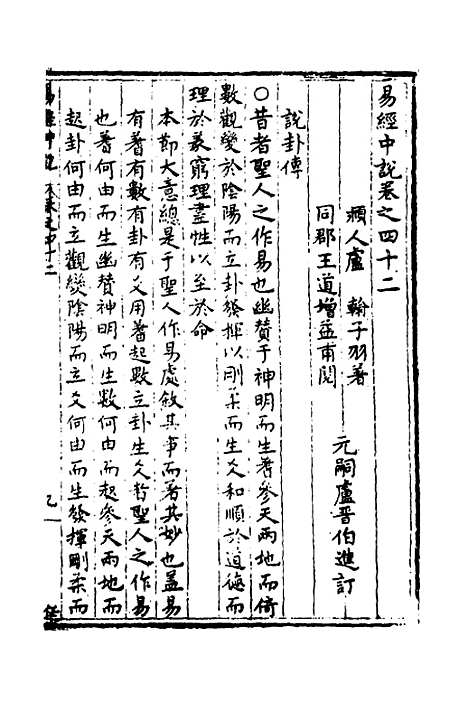 易經中說卷之四十二
潁人盧　翰子羽著
同郡王道增益甫閱
元嗣盧晋伯進訂
說卦傳
○昔者聖人之作易也幽贊于神明而生蓍參天兩地而倚
數觀變於陰陽而立卦發揮以剛柔而生爻和順於道德而
理於義窮理盡性以至於命
本節大意總是于聖人作易處敘其事而著其妙也盖易
有蓍有數有卦有爻用蓍起數立卦生爻於聖人之作易
也蓍何由而生幽贊神明而生數何由而起參天兩地而
起卦何由而立觀變陰陽而立爻何由而生發揮剛柔而